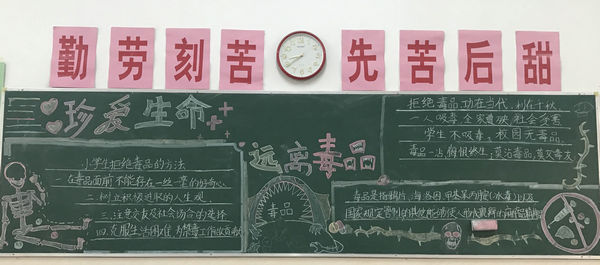 勤劳刻苦 先苦后甜
珍爱生命
远离毒品
小学生拒绝毒品的方法
一.在毒品面前不能存在一丝一毫的好奇心.
二.树立积极进取的人生观.
三.注意交友及社会场合的选择
四.克服生活困难 为禁毒工作做贡献
毒品
拒绝毒品,功在当代,利在千秋.
一人吸毒 全家遭殃 社会今害
学生不吸毒,校园无毒品.
毒品一沾,悔恨终生;莫沾毒品,莫交毒友
毒品是指鸦片、海洛因、甲基苯丙胺(冰毒)以及
国家规定管制的其他能够使人形成瘾癖的